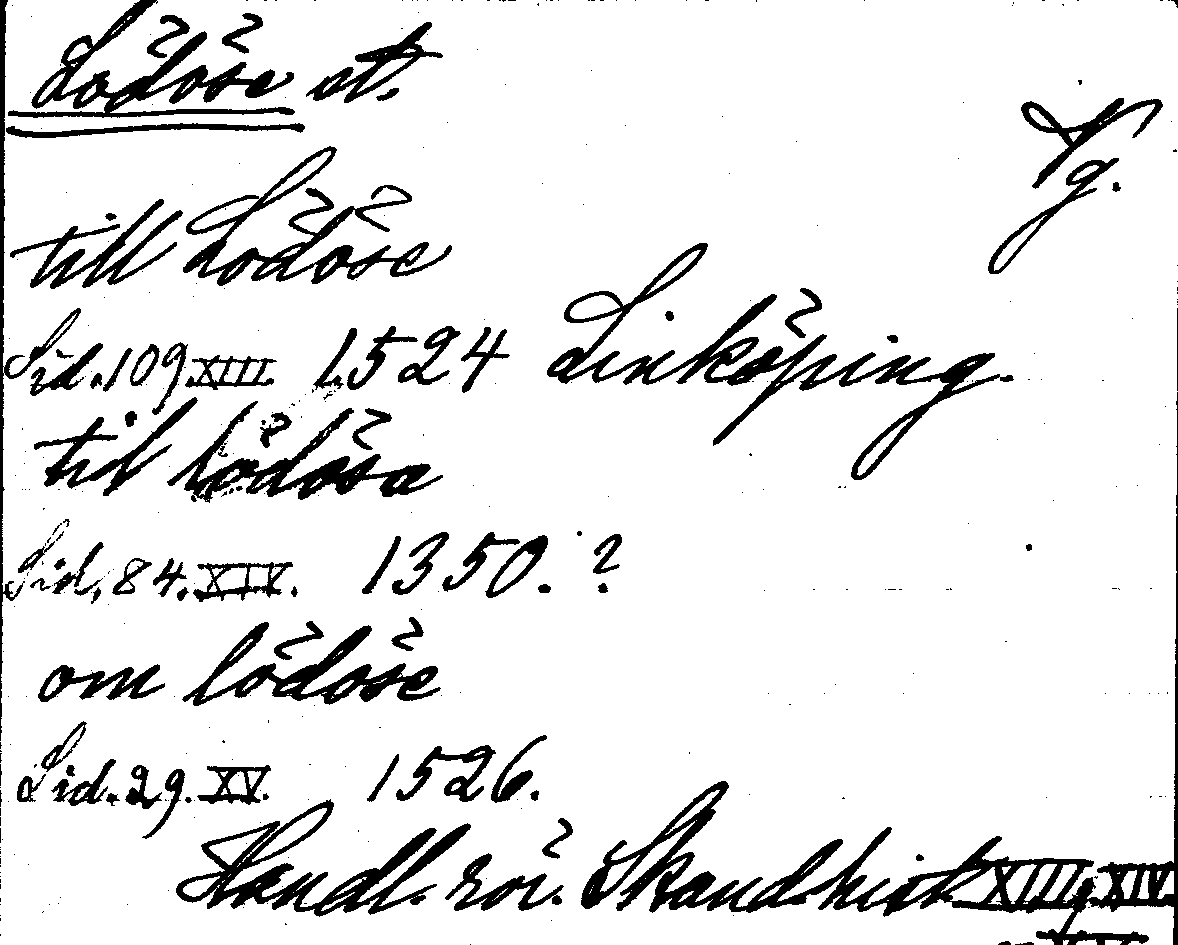 Lödöse st.
Vg.
till Lödöse
Sid. 109. XIII. 1524 Linköping.
til lödösa
Sid. 84. XIV. 1350. ?
om lödöse
Sid. 29. XV. 1526.
Handl. rör. Skand. hist. XIII, XIV